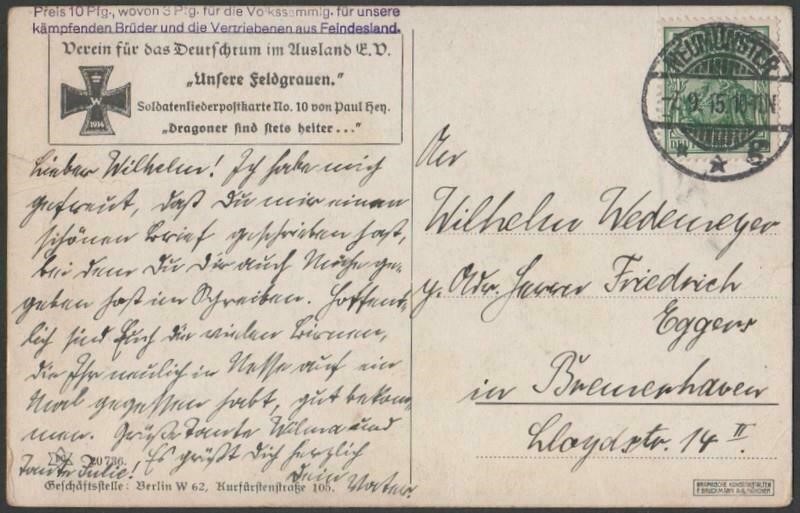 Preis 10 Pfg., wovon 3 Pfg. für die Volkssammlg. für unsere
kämpfenden Brüder und die Vertriebenen aus Feindesland.
Verein für das Deutschtum im Ausland E.V.
„Unsere Feldgrauen.“
Soldatenliederpostkarte No. 10 von Paul Hey.
„Dragoner sind stets heiter...“
W
1914
NEUMÜNSTER
7.9.15.10-11N.
* * g
Lieber Wilhelm! Ich habe mich
gefreut, daß Du mir einen
schönen Brief geschrieben hast,
bei dem Du Dir auch Mühe ge-
geben hast im Schreiben. Hoffent-
lich sind Euch die vielen Birnen,
die Ihr neulich in Nesse auf ein
Mal gegessen habt, gut bekom-
men. Grüße Tante Wilma und
Tante Julie! Es grüßt Dich herzlich
Dein Vater.
An
Wilhelm Wedemeyer
p. Adr. Herrn Friedrich
Eggers
in Bremerhaven
Lloydstr. 14 II
20736.
Geschäftsstelle: Berlin W 62, Kurfürstenstraße 105.
GRAPHISCHE KUNSTANSTALTEN
F. BRUCKMANN A.G. MÜNCHEN